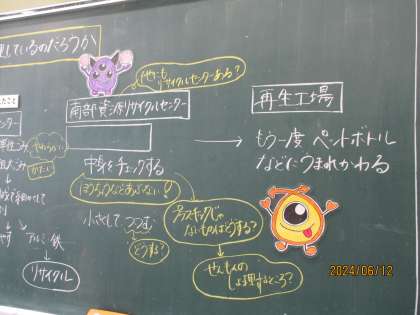 しているのだろうか
ほかにもリサイクルセンターある?
南部資源リサイクルセンター
再生工場
もう一度 ペットボトル
などにうまれかわる
中身をチェックする
ほうちょうなどあぶない!
小さくして つつむ
どうする?
プラスチックじゃ
ないものはどうする?
せんもんの
しょ理するところ?
やわらかい
かたい
アルミ 鉄
リサイクル
2024/06/12